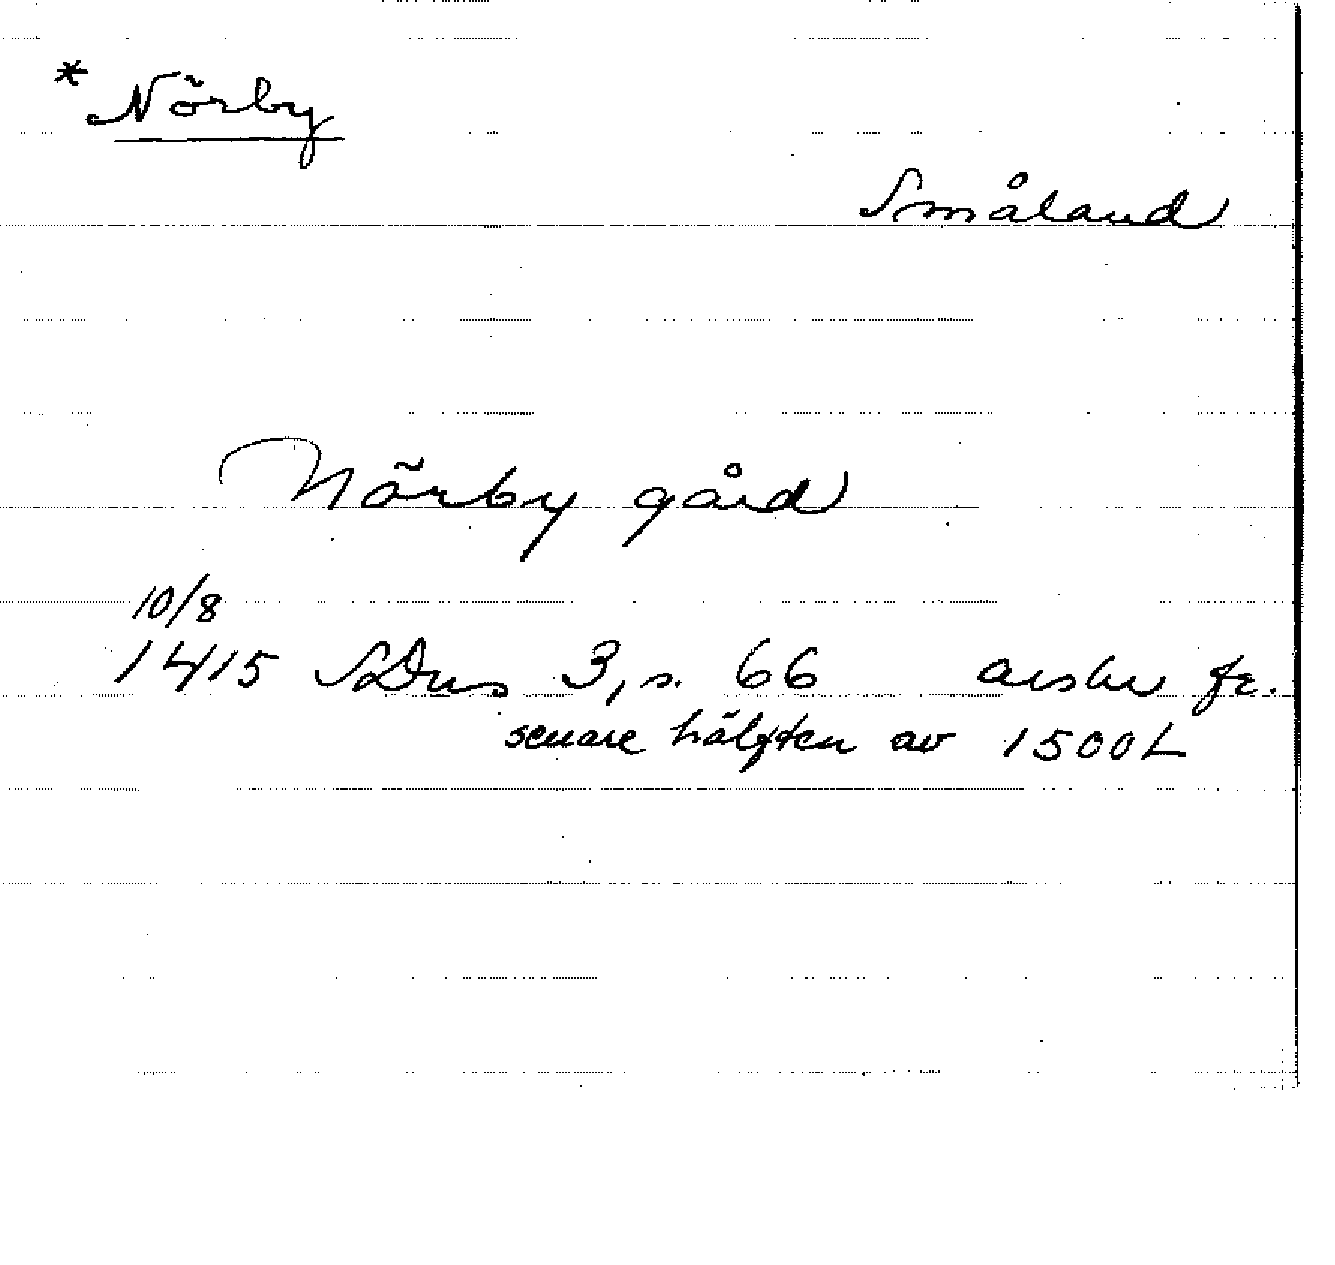 * Nörby
Småland
Nörby gård
10/8
1415 SDns 3, s. 66 avskr fr.
senare hälften av 1500t